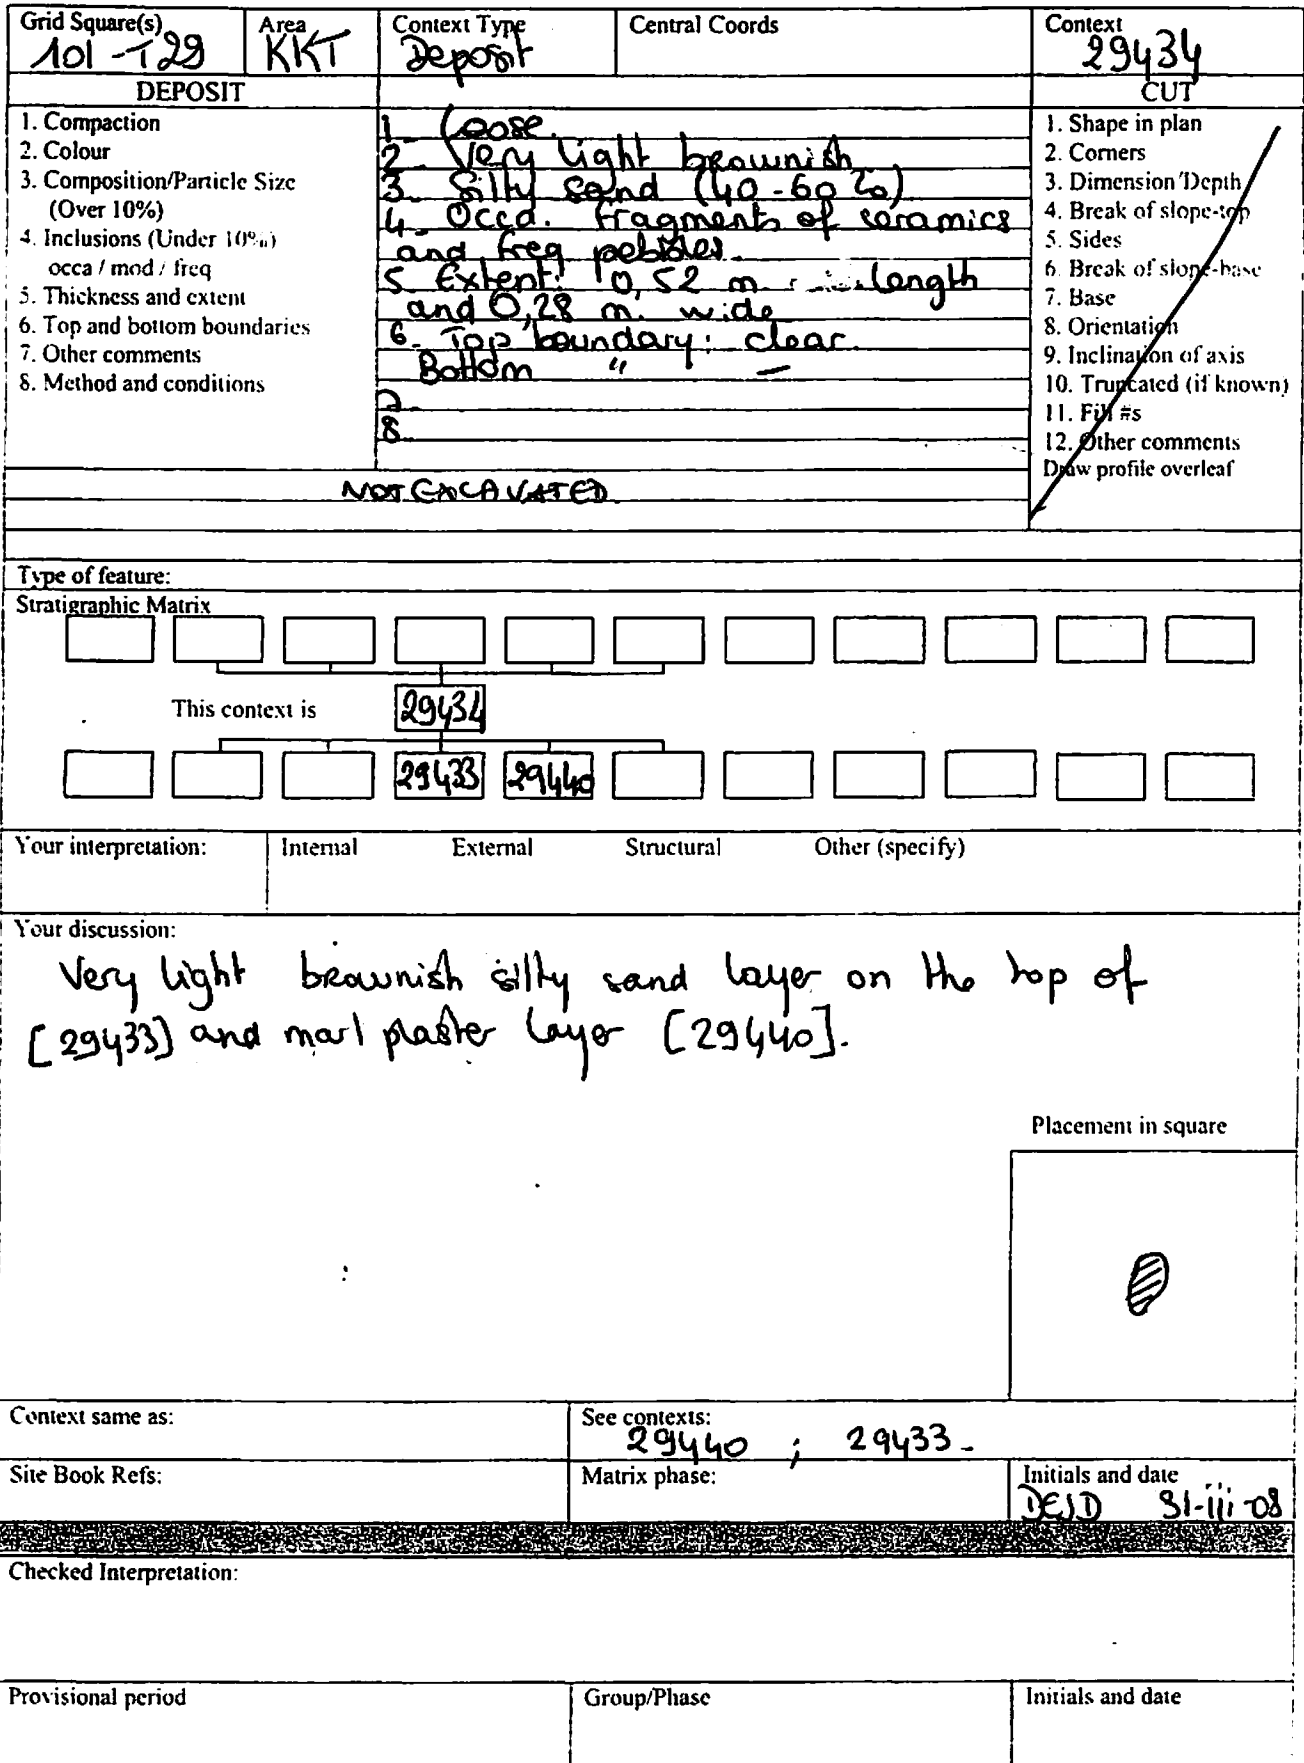 Grid Square(s) Area Context Type Central Coords Context
101-T29 KKT Deposit 29434
DEPOSIT CUT
1. Compaction
2. Colour
3. Composition/Particle Size
(Over 10%)
4. Inclusions (Under 10%)
occa / mod / freq
5. Thickness and extent
6. Top and bottom boundaries
7. Other comments
8. Method and conditions
1. Loose.
2. Very light brownish.
3. Silty sand (40-60 %)
4. Occa. fragments of ceramics
and freq pebbles.
5. Extent: 0,52 m. length
and 0,28 m. wide
6. Top boundary: clear.
Bottom " –
7.
8.
NOT EXCAVATED.
1. Shape in plan
2. Corners
3. Dimension/Depth
4. Break of slope-top
5. Sides
6. Break of slope-base
7. Base
8. Orientation
9. Inclination of axis
10. Truncated (if known)
11. Fill #s
12. Other comments
Draw profile overleaf
Type of feature:
Stratigraphic Matrix
This context is 29434
29433 29440
Your interpretation: Internal External Structural Other (specify)
Your discussion:
Very light brownish silty sand layer on the top of
[29433] and marl plaster layer [29440].
Placement in square
Context same as: See contexts:
29440 ; 29433-
Site Book Refs: Matrix phase: Initials and date
31-iii-08
Checked Interpretation:
Provisional period Group/Phase Initials and date